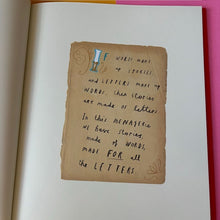 IF WORDS make
up STORIES,
and LETTERS make up
WORDS, then stories
are made of letters.
In this MENAGERIE
we have stories,
made of WORDS,
made FOR all
the LETTERS.